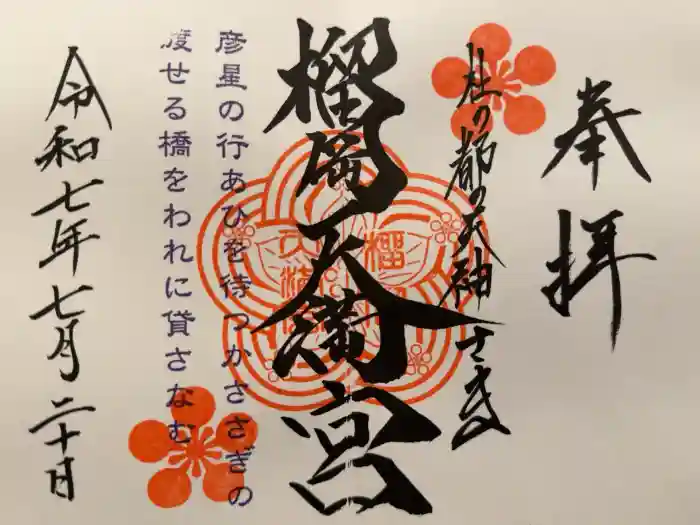 奉拝
杜の都の天神さま
榴岡天満宮
彦星の行あひを待つかささぎの
渡せる橋をわれに貸さなむ
令和七年七月二十日